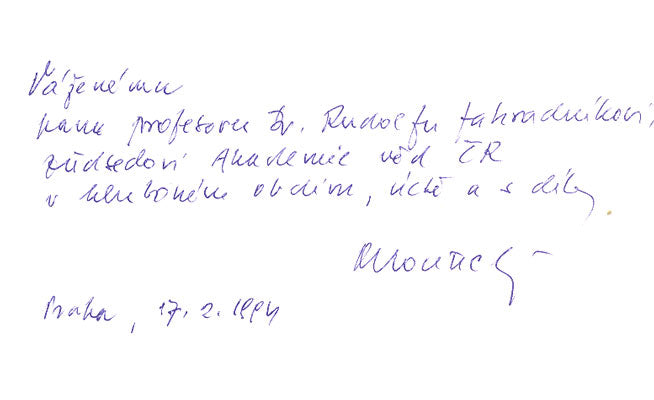 Váženému
panu profesoru Dr. Rudolfu Zahradníkovi,
předsedovi Akademie věd ČR
v hlubokém obdivu, úctě a s díky
Praha, 17. 2. 1994